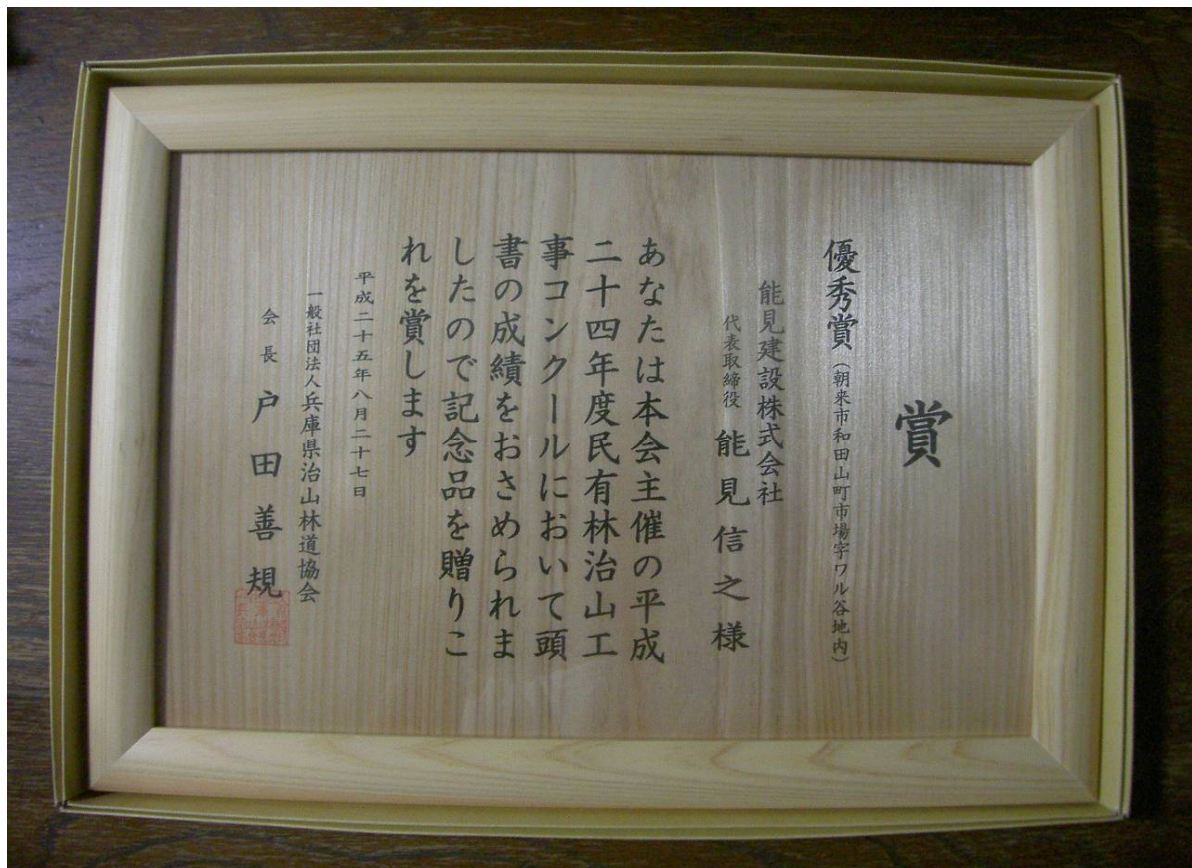 賞
優秀賞(朝来市和田山町市場字ワル谷地内)
能見建設株式会社
代表取締役 能見信之様
あなたは本会主催の平成
二十四年度民有林治山工
事コンクールにおいて頭
書の成績をおさめられま
したので記念品を贈りこ
れを賞します
平成二十五年八月二十七日
一般社団法人兵庫県治山林道協会
会長 戸田善規